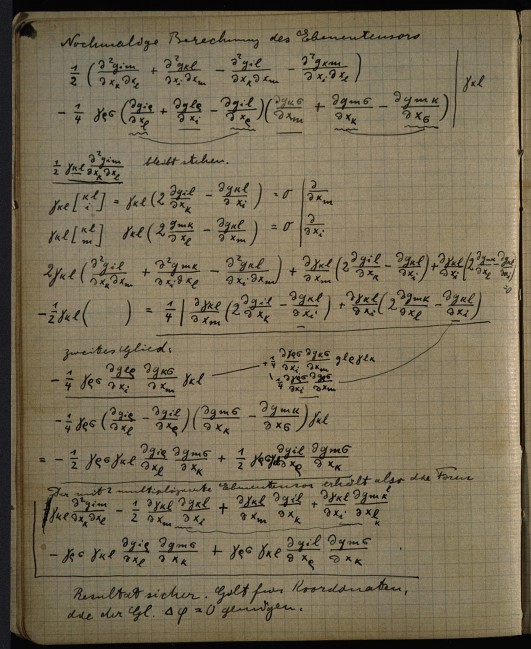 Nochmalige Berechnung des Ebenentensors
1/2 (∂²g_im/∂x_k∂x_l + ∂²g_kl/∂x_i∂x_m − ∂²g_il/∂x_k∂x_m − ∂²g_km/∂x_i∂x_l) | γ_kl
− 1/4 γ_ρσ (∂g_iρ/∂x_l + ∂g_lρ/∂x_i − ∂g_il/∂x_ρ)(∂g_kσ/∂x_m + ∂g_mσ/∂x_k − ∂g_mk/∂x_σ)
1/2 γ_kl ∂²g_im/∂x_k∂x_l bleibt stehen.
γ_kl [kl i] = γ_kl (2 ∂g_il/∂x_k − ∂g_kl/∂x_i) = 0 | ∂/∂x_m
γ_kl [kl m] γ_kl (2 ∂g_mk/∂x_l − ∂g_kl/∂x_m) = 0 | ∂/∂x_i
2γ_kl (∂²g_il/∂x_k∂x_m + ∂²g_mk/∂x_i∂x_l − ∂²g_kl/∂x_i∂x_m) + ∂γ_kl/∂x_m (2 ∂g_il/∂x_k − ∂g_kl/∂x_i) + ∂γ_kl/∂x_i (2 ∂g_mk/∂x_l − ∂g_kl/∂x_m) = 0
− 1/2 γ_kl ( ) = 1/4 | ∂γ_kl/∂x_m (2 ∂g_il/∂x_k − ∂g_kl/∂x_i) + ∂γ_kl/∂x_i (2 ∂g_mk/∂x_l − ∂g_kl/∂x_i)
zweites Glied:
− 1/4 γ_ρσ ∂g_lρ/∂x_i ∂g_kσ/∂x_m γ_kl
− 1/4 γ_ρσ (∂g_iρ/∂x_l − ∂g_il/∂x_ρ)(∂g_mσ/∂x_k − ∂g_mk/∂x_σ) γ_kl
= − 1/2 γ_ρσ γ_kl ∂g_iρ/∂x_l ∂g_mσ/∂x_k + 1/2 γ_ρσ γ_kl ∂g_il/∂x_ρ ∂g_mσ/∂x_k
Der mit 2 multiplizierte Ebenentensor erhält also die Form
γ_kl ∂²g_im/∂x_k∂x_l − 1/2 ∂γ_kl/∂x_m ∂g_kl/∂x_i + ∂γ_kl/∂x_m ∂g_il/∂x_k + ∂γ_kl/∂x_i ∂g_mk/∂x_l
− γ_ρσ γ_kl ∂g_iρ/∂x_l ∂g_mσ/∂x_k + γ_ρσ γ_kl ∂g_il/∂x_ρ ∂g_mσ/∂x_k
Resultat sicher. Gilt für Koordinaten,
die der Gl. Δφ = 0 genügen.